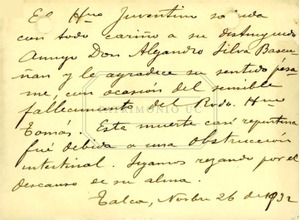 El Hno Juventino saluda
con todo cariño a su distinguido
Amigo Don Alejandro Silva Bascu
ñan y le agradece su sentido pésa
me, con ocasión del sensible
fallecimiento del Rvdo. Hno
Tomás. Esta muerte casi repentina
fué debida a una obstrucción
intestinal. Sigamos rogando por el
descanso de su alma.
Talca, Novbre 26 de 1932